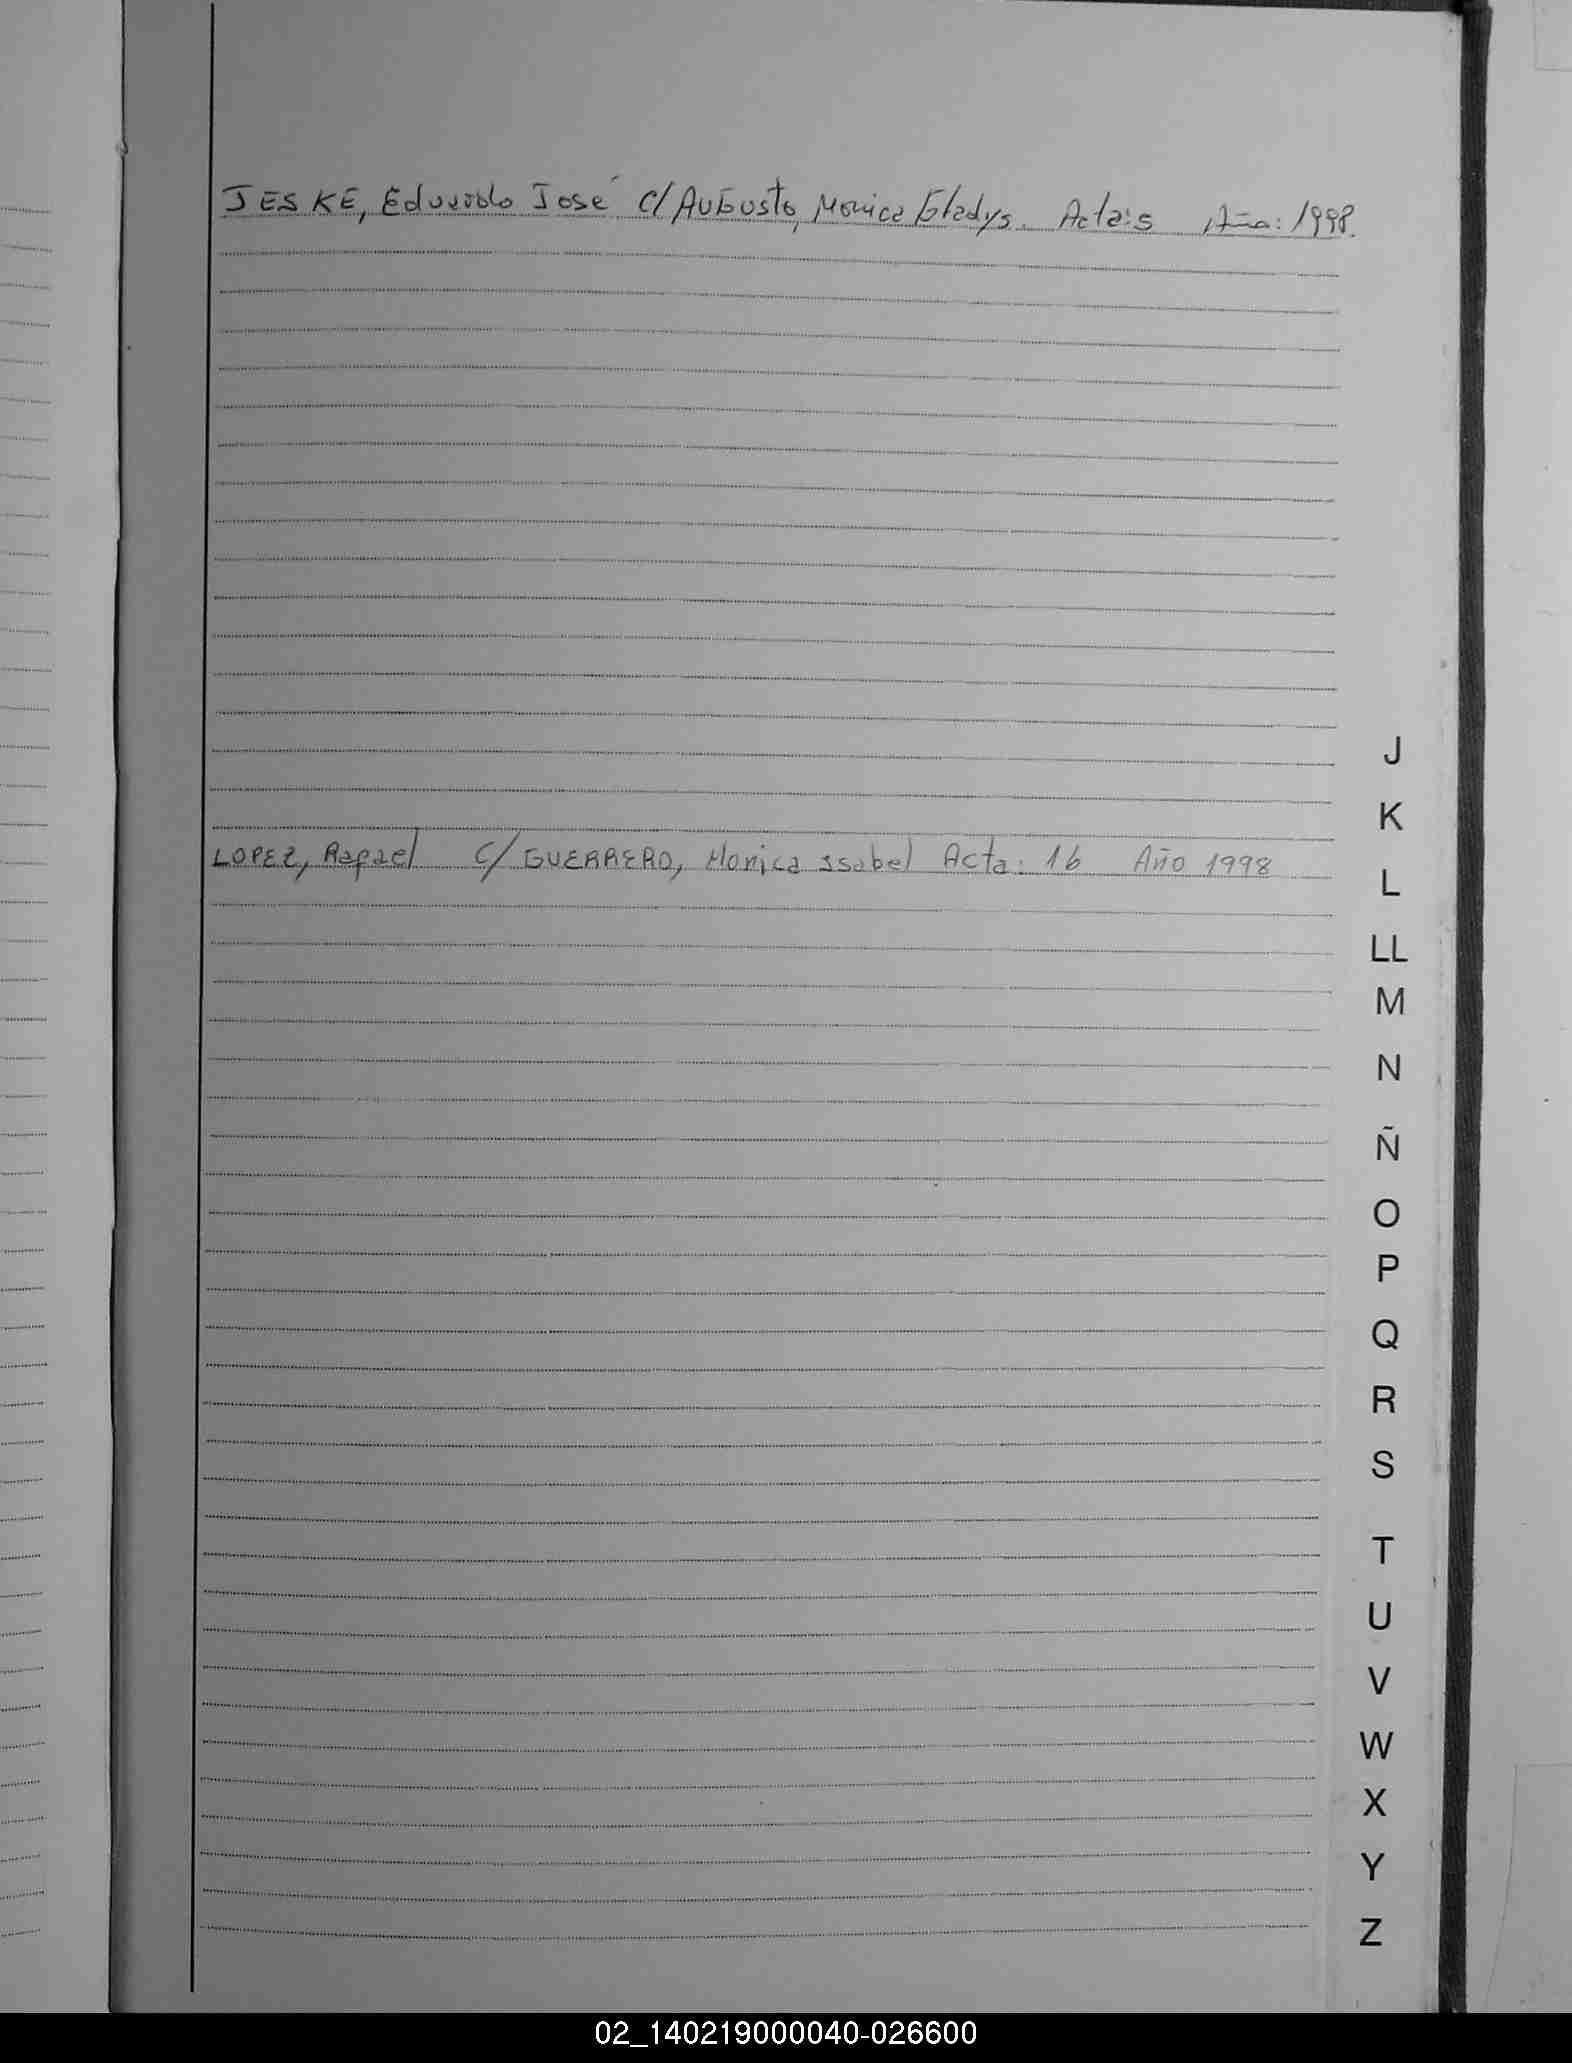 JESKE, Eduardo José C/ AUGusto, Monica Gladys. Acta: 5 Año: 1998.
LOPEZ, Rafael C/ GUERRERO, Monica Isabel Acta: 16 Año 1998
J
K
L
LL
M
N
Ñ
O
P
Q
R
S
T
U
V
W
X
Y
Z
02_140219000040-026600